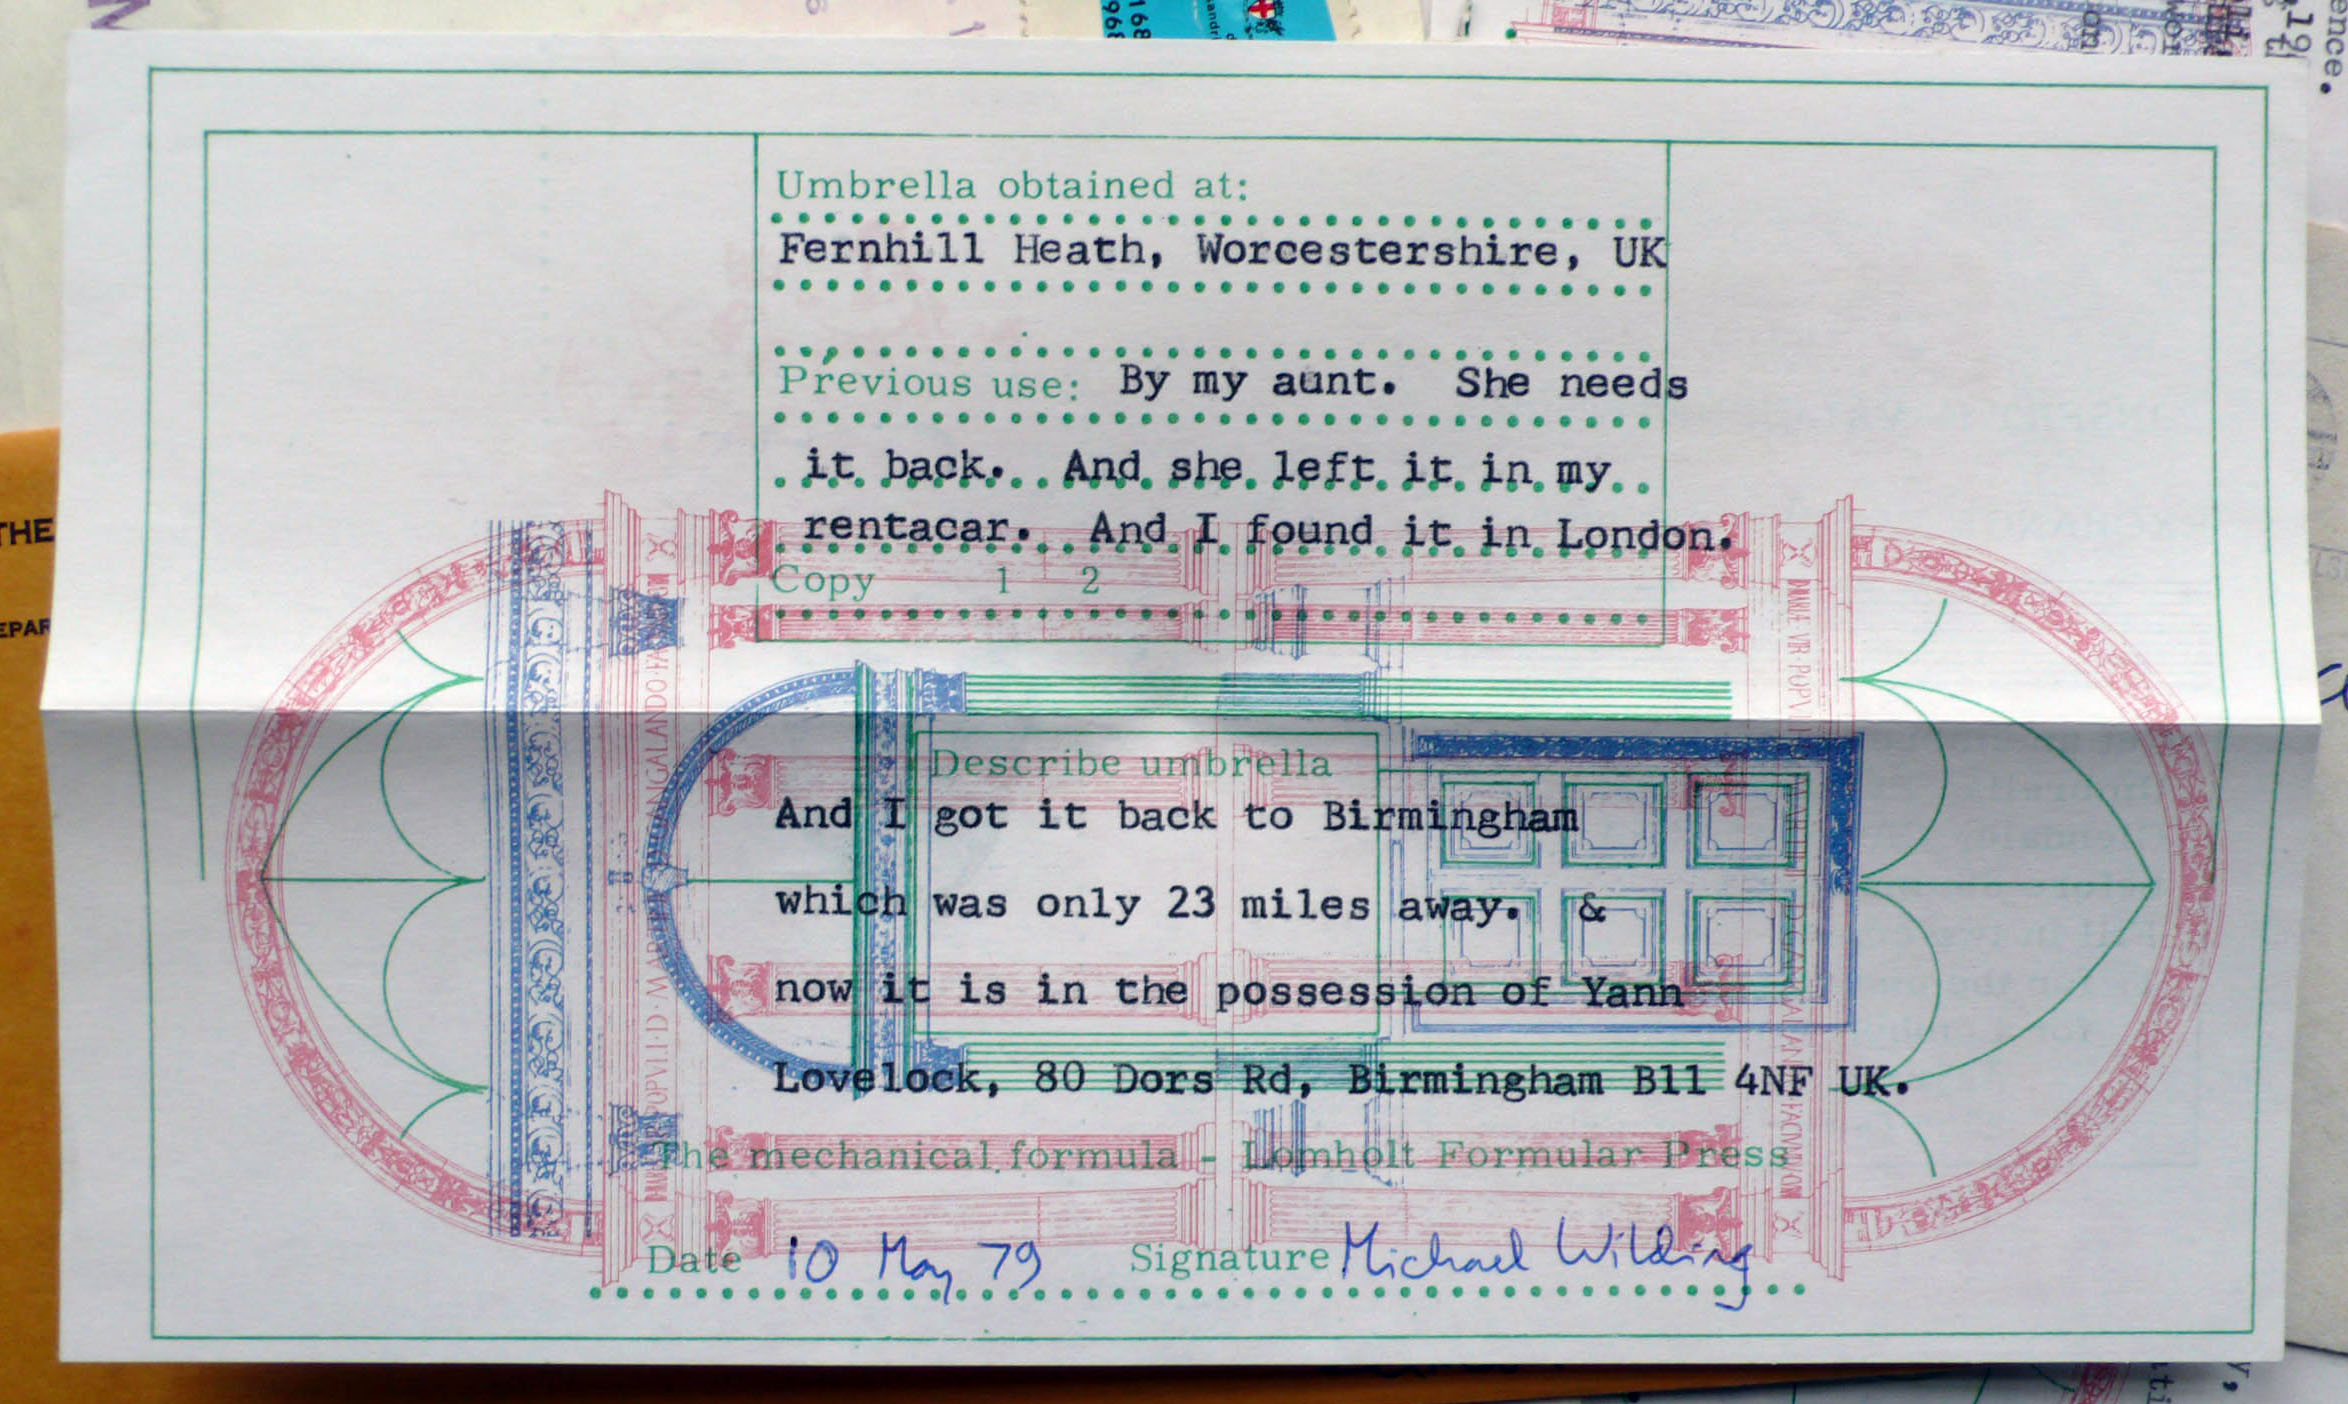 Umbrella obtained at:
Fernhill Heath, Worcestershire, UK
Previous use: By my aunt. She needs
it back. And she left it in my
rentacar. And I found it in London.
Copy 1 2
Describe umbrella
And I got it back to Birmingham
which was only 23 miles away. &
now it is in the possession of Yann
Lovelock, 80 Dors Rd, Birmingham B11 4NF UK.
The mechanical formula - Lomholt Formular Press
Date 10 May 79 Signature Michael Wilding
THE
ence.
168